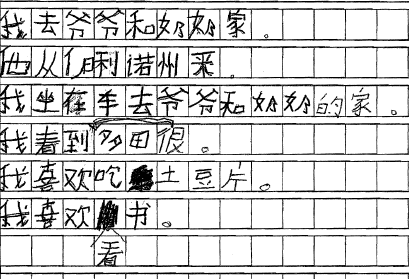 我去爷爷和奶奶家。
他从伊利诺州来.
我坐在车去爷爷和奶奶的家。
我看到多田很。
我喜欢吃土豆片。
我喜欢书。
看